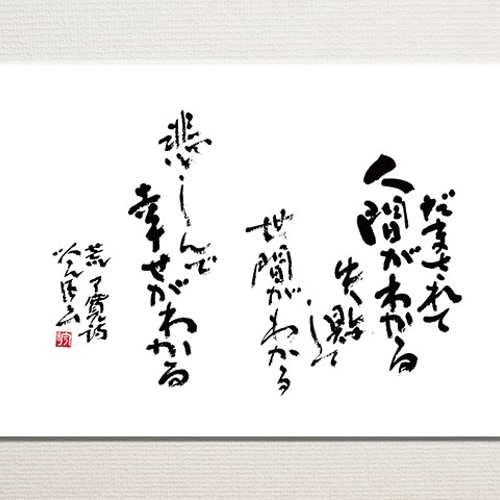 だまされて
人間がわかる
失敗して
世間がわかる
悲しんで
幸せがわかる
荒了寛詩